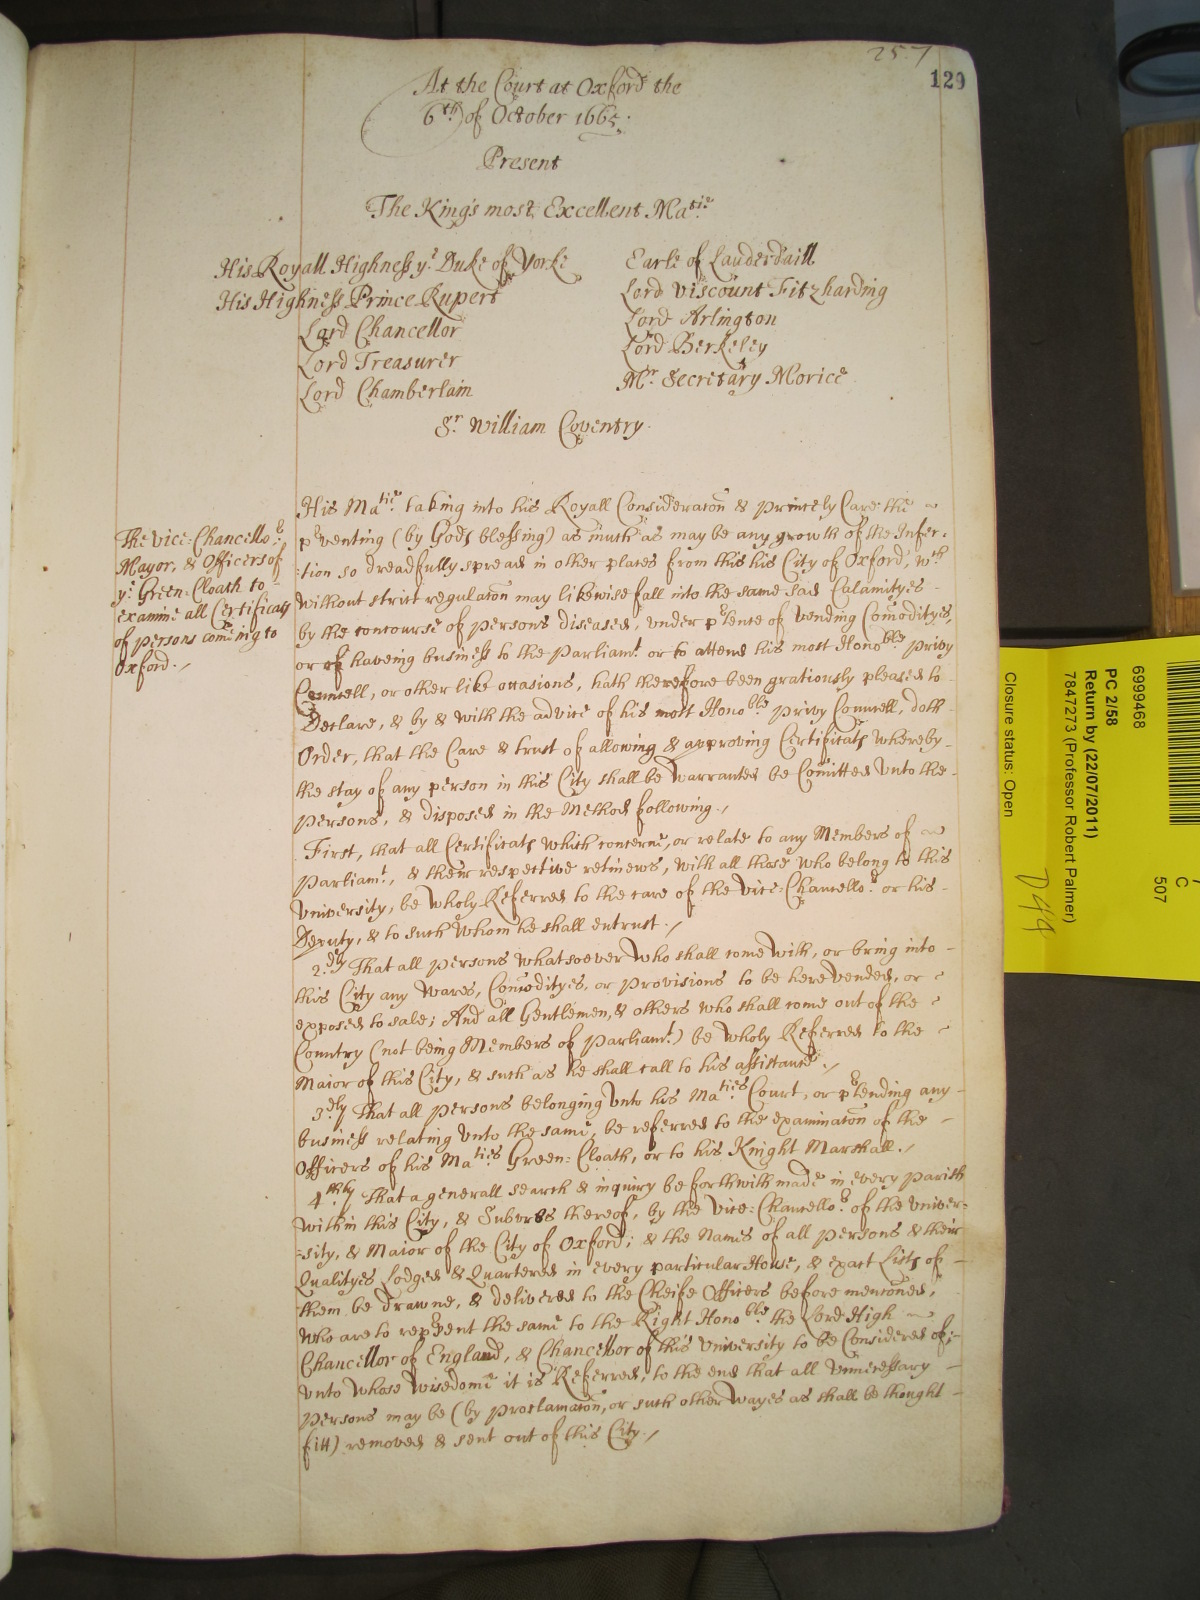 257
129
At the Court at Oxford the
6th of October 1665.
Present
The King's most Excellent Matie
His Royall Highness ye Duke of Yorke
His Highness Prince Rupert
Lord Chancellor
Lord Treasurer
Lord Chamberlain
Earle of Lauderdaill
Lord Viscount Fitzharding
Lord Arlington
Lord Berkeley
Mr Secretary Morice
Sr William Coventry.
The Vice-Chancellor
Mayor, & Officers of
ye Green-Cloath to
examine all Certificats
of persons comeing to
Oxford./
His Matie taking into his Royall Consideraton & Princely Care the
pventing (by Gods blessing) as much as may be any growth of the Infec-
-tion so dreadfully spread in other places from this his City of Oxford, wch
without strict regulaton may likewise fall into the same sad Calamityes
by the concourse of persons diseased, under ptence of vending Comodityes,
or of haveing business to the Parliamt. or to attend his most Honoble Privy
Councell, or other like occasions, hath therefore been gratiously pleased to
Declare, & by & with the advice of his most Honoble Privy Councell, doth
Order, that the Care & trust of allowing & approving Certificats whereby
the stay of any person in this City shall be warranted be Comitted unto the
persons, & disposed in the Method following./
First, that all Certificats which concerne, or relate to any Members of
Parliamt., & their respective retinews, with all those who belong to this
University, be wholy Referred to the care of the Vice-Chancellor or his
Deputy, & to such whom he shall entrust./
2dly That all persons whatsoever who shall come with, or bring into
this City any Wares, Comodityes, or provisions to be here vended, or
exposed to sale; And all Gentlemen, & others who shall come out of the
Country (not being Members of Parliamt.) be wholy Referred to the
Maior of this City, & such as he shall call to his assistance./
3dly That all persons belonging unto his Maties Court, or ptending any
business relating unto the same, be referred to the examinaton of the
Officers of his Maties Green-Cloath, or to his Knight Marshall./
4thly That a generall search & inquiry be forthwith made in every Parish
within this City, & Suburbs thereof, by the Vice-Chancellor of the Univer-
-sity, & Maior of the City of Oxford; & the Names of all persons & their
Qualityes Lodged & Quartered in every particular House, & exact Lists of
them be drawne, & delivered to the Cheife Officers before mentoned,
who are to repsent the same to the Right Honoble the Lord High
Chancellor of England, & Chancellor of this University to be Considered of;
unto whose wisedome it is Referred, to the end that all unnecessary
persons may be (by Proclamaton, or such other wayes as shall be thought
fitt) removed & sent out of this City./
6999468
PC 2/58
Return by (22/07/2011)
7847273 (Professor Robert Palmer)
Closure status: Open
C
507